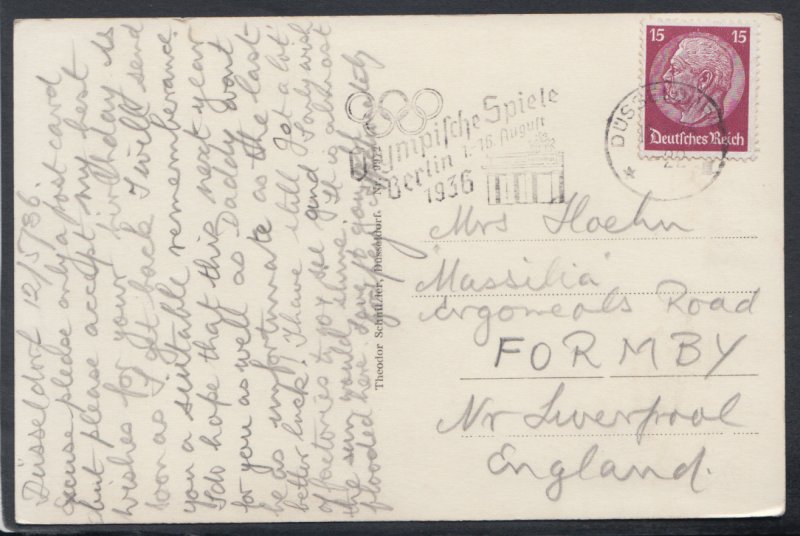 Düsseldorf 12/5/36.
Excuse please only a postcard
but please accept my best
wishes for your birthday. As
soon as I get back I will send
you a suitable remembrance.
I do hope that this next year
for you as well as Daddy wont
be as unfortunate as the last.
better luck! I have still got a lot
of factories to see and I only wish
the sun would shine. It is almost
flooded here.
Theodor Schnitzler, Düsseldorf.
Olympische Spiele
Berlin 1.-16. August
1936
15 15
Deutsches Reich
DÜSSELDORF
22
Mrs Hoehn
"Massilia"
Argameols Road
FORMBY
Nr Liverpool
England.